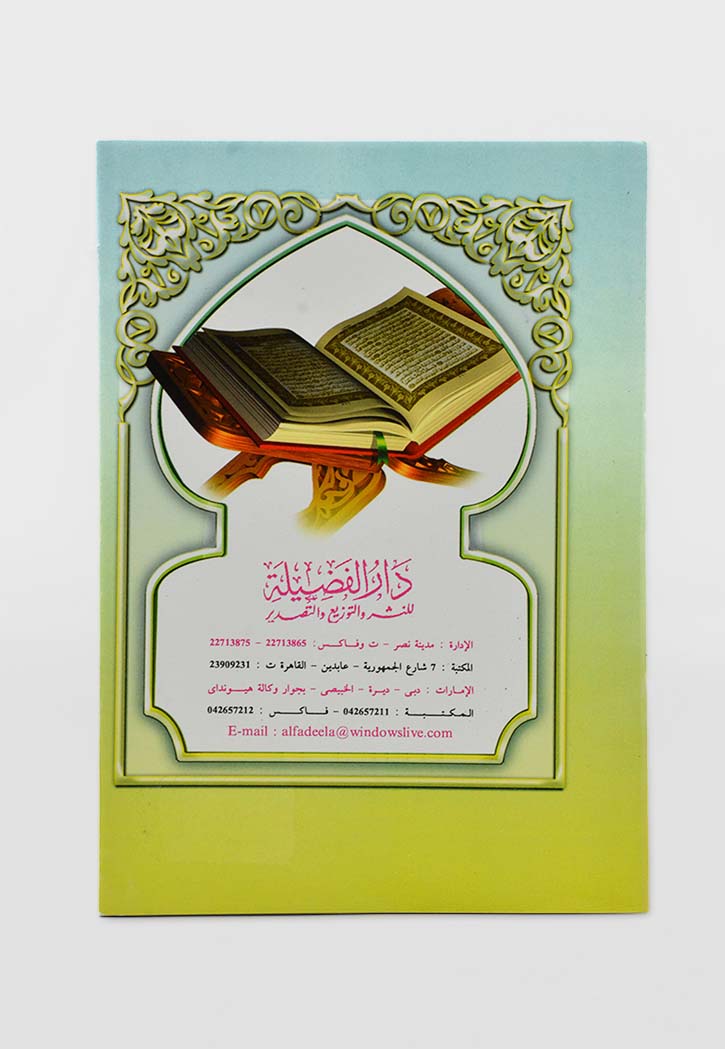 دَارُ الفَضِيلَة
للنشر والتوزيع والتصدير
الإدارة : مدينة نصر - ت وفاكس : 22713865 - 22713875
المكتبة : 7 شارع الجمهورية - عابدين - القاهرة ت : 23909231
الإمارات : دبى - ديرة - الخبيصى - بجوار وكالة هيونداى
المكتبة : 042657211 - فاكس : 042657212
E-mail : alfadeela@windowslive.com